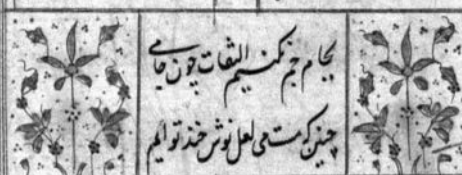 بجام جم نکنیم التفات چون جامی
چنین که مست می لعل نوش خند توایم